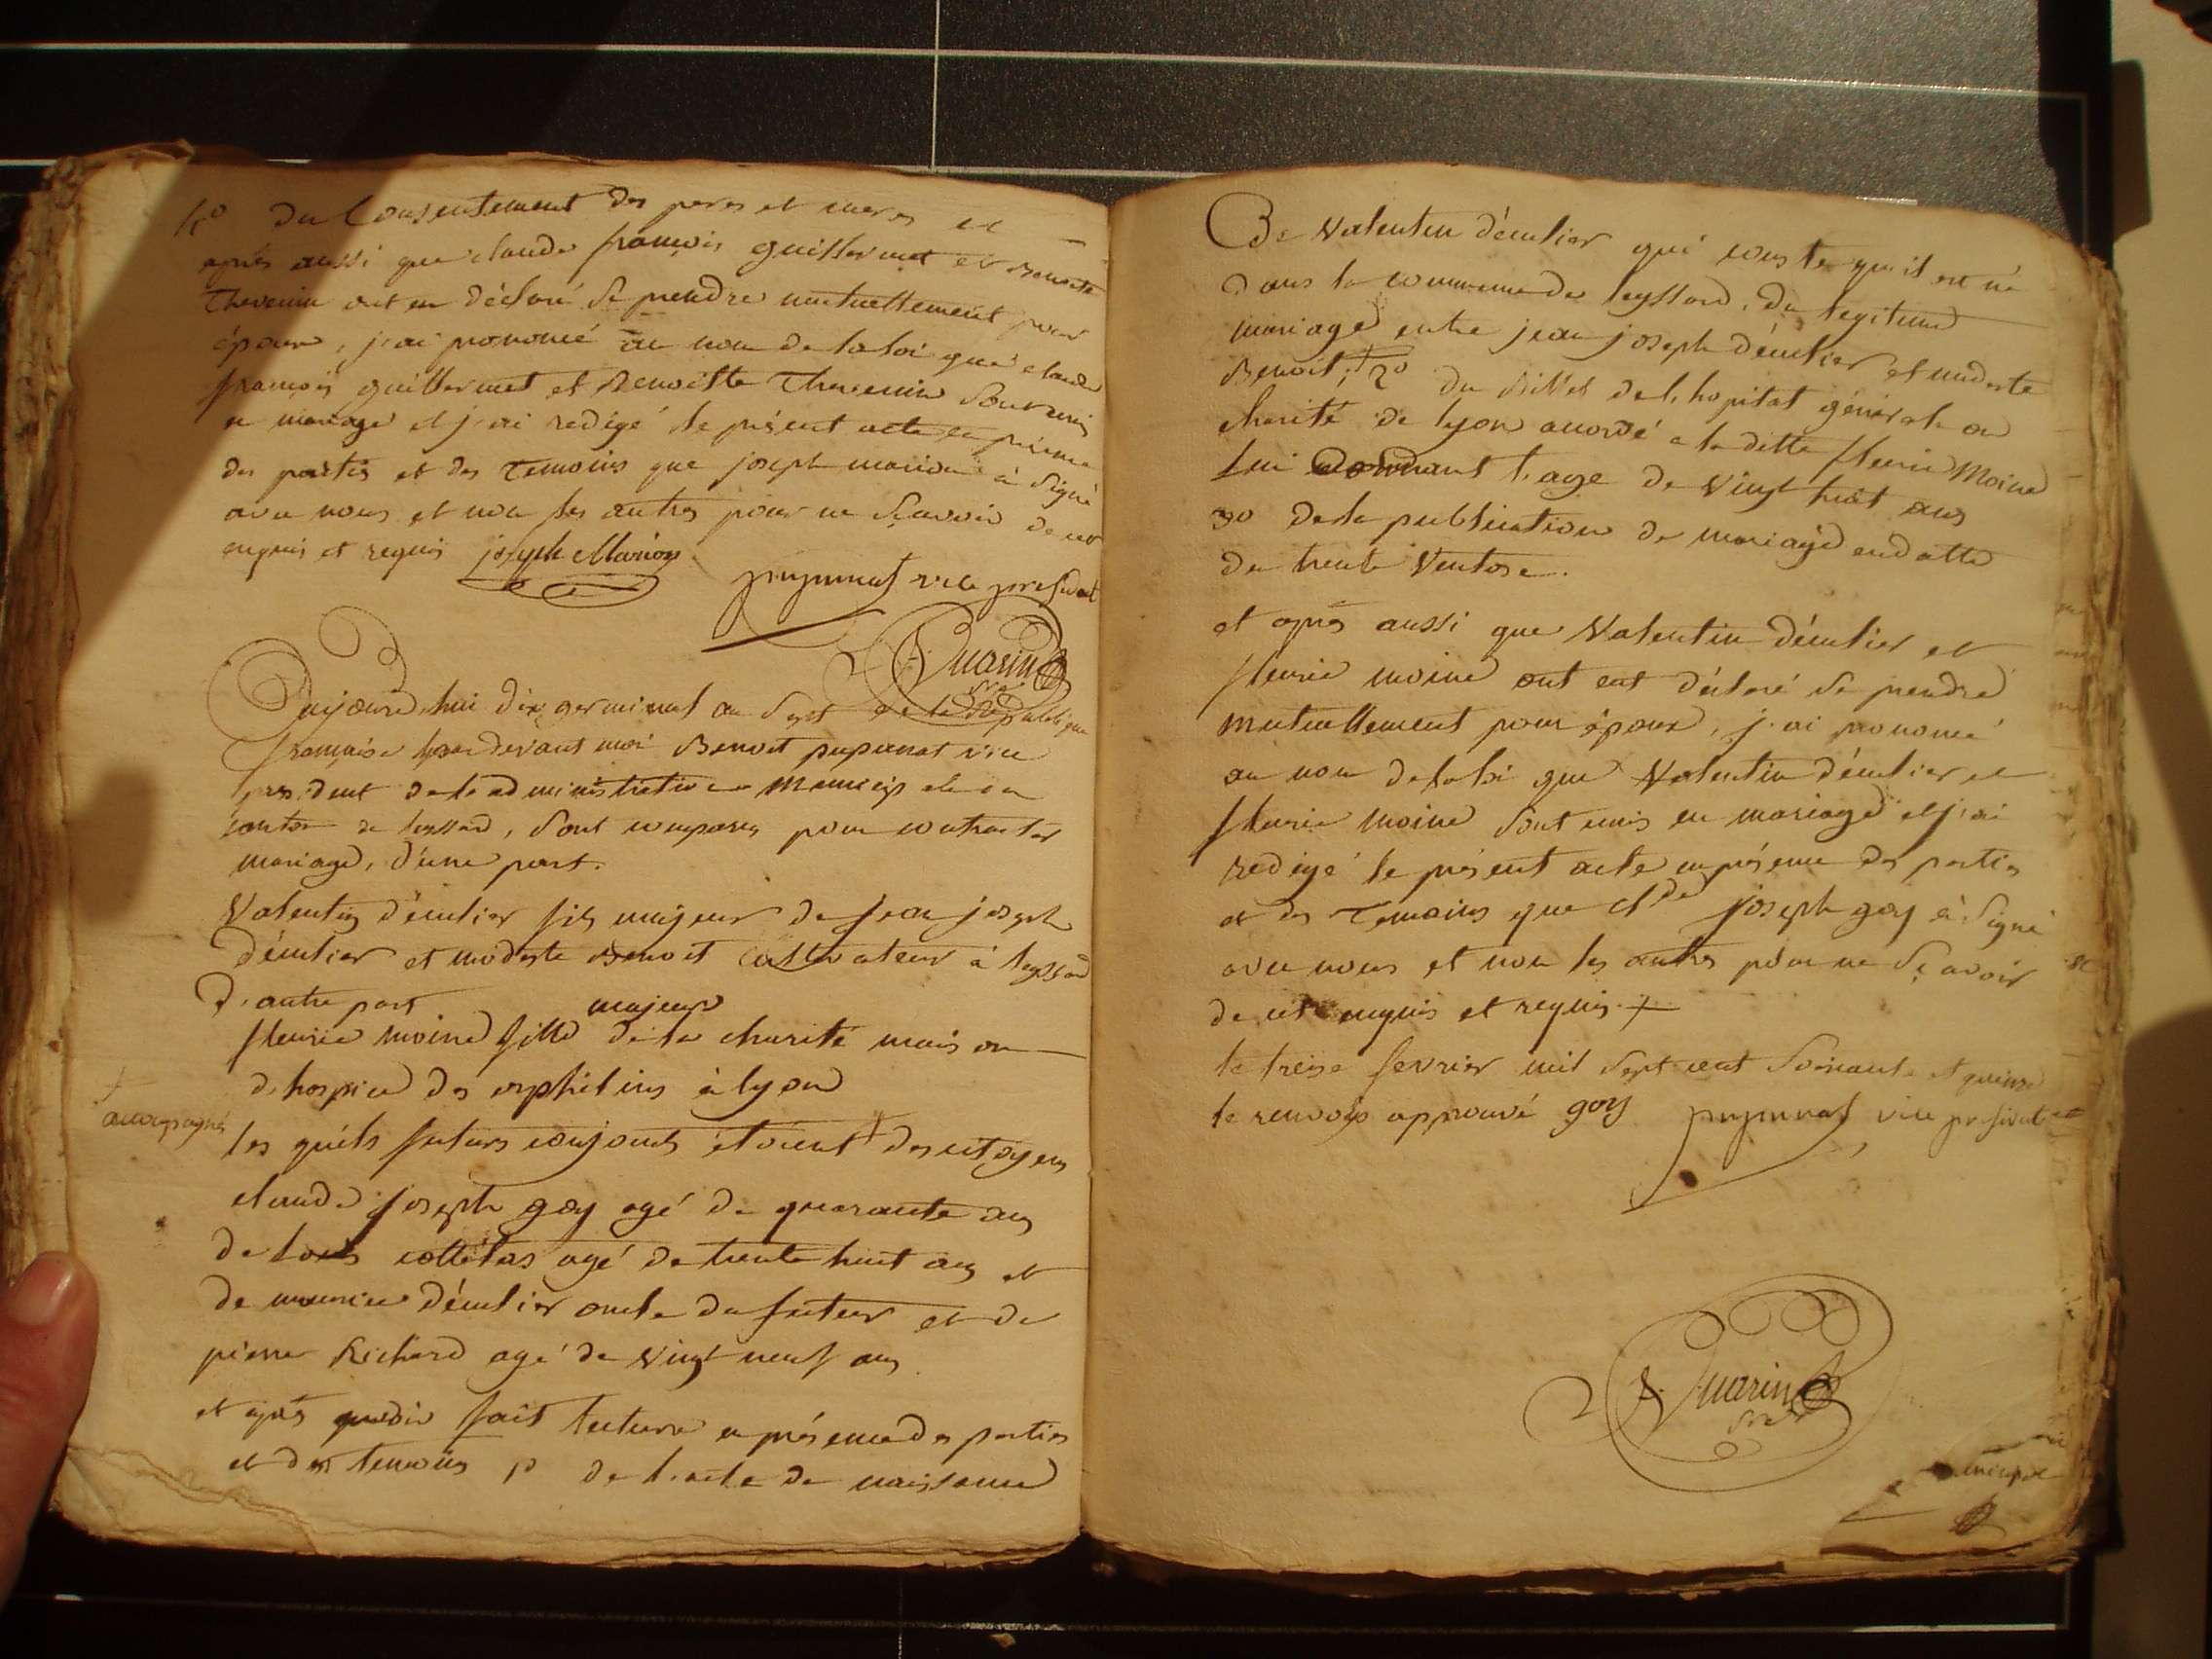 4o du Consentement des peres et meres et
après aussi que claude françois guillermet et Benoite
Thevenin ont eu déclaré se prendre mutuellement pour
époux, j'ai prononcé au nom de la loi que claude
françois guillermet et Benoitte Thevenin sont unis
en mariage et j'ai redigé le présent acte en présence
des parties et des temoins que joseph marion à signé
avec nous et non les autres pour ne sçavoir de ce
enquis et requis joseph Marion
vice president
A. Marin
Sre
Aujourd'hui dix germinal an sept de la République
française par devant moi Benoit pupunat vice
président de l'administration Municipale du
canton de leyssard, sont comparus pour contracter
mariage, d'une part.
Valentin décutier fils majeur de jean joseph
décutier et modeste Benoit Cultivateur à leyssard
d'autre part
majeure
fleurie moine fille de la charité maison
d'hospice des orphelins à lyon
+
accompagnés
les quels futurs conjoints étoient + des citoyens
claude joseph goy agé de quarante ans
de agé de trente huit ans et
de maurice décutier oncle du futeur et de
pierre Richard agé de vingt neuf ans
et après avoir fait lecture en présence des parties
et des temoins 1o de l'acte de naissance
De Valentin décutier qui conste qu'il est né
dans la commune de leyssard, du legitime
mariage entre jean joseph décutier et modeste
Benoit; + 2o du billet de l'hopital général ou
charité de lyon accordé a la ditte fleurie Moine
lui donnant l'age de vingt huit ans
3o de la publication de mariage en datte
du trente Ventose.
et après aussi que Valentin décutier et
fleurie moine ont eut déclaré se prendre
mutuellement pour époux, j'ai prononcé
au nom de la loi que Valentin décutier et
fleurie moine sont unis en mariage et j'ai
redigé le présent acte en présence des parties
et des Temoins que Clde joseph goy à signé
avec nous et non les autres pour ne sçavoir
de ce enquis et requis +
le treise fevrier mil sept cent soixante et quinse
le renvois approuvé goy pupunat vice president
A. Marin
Sre